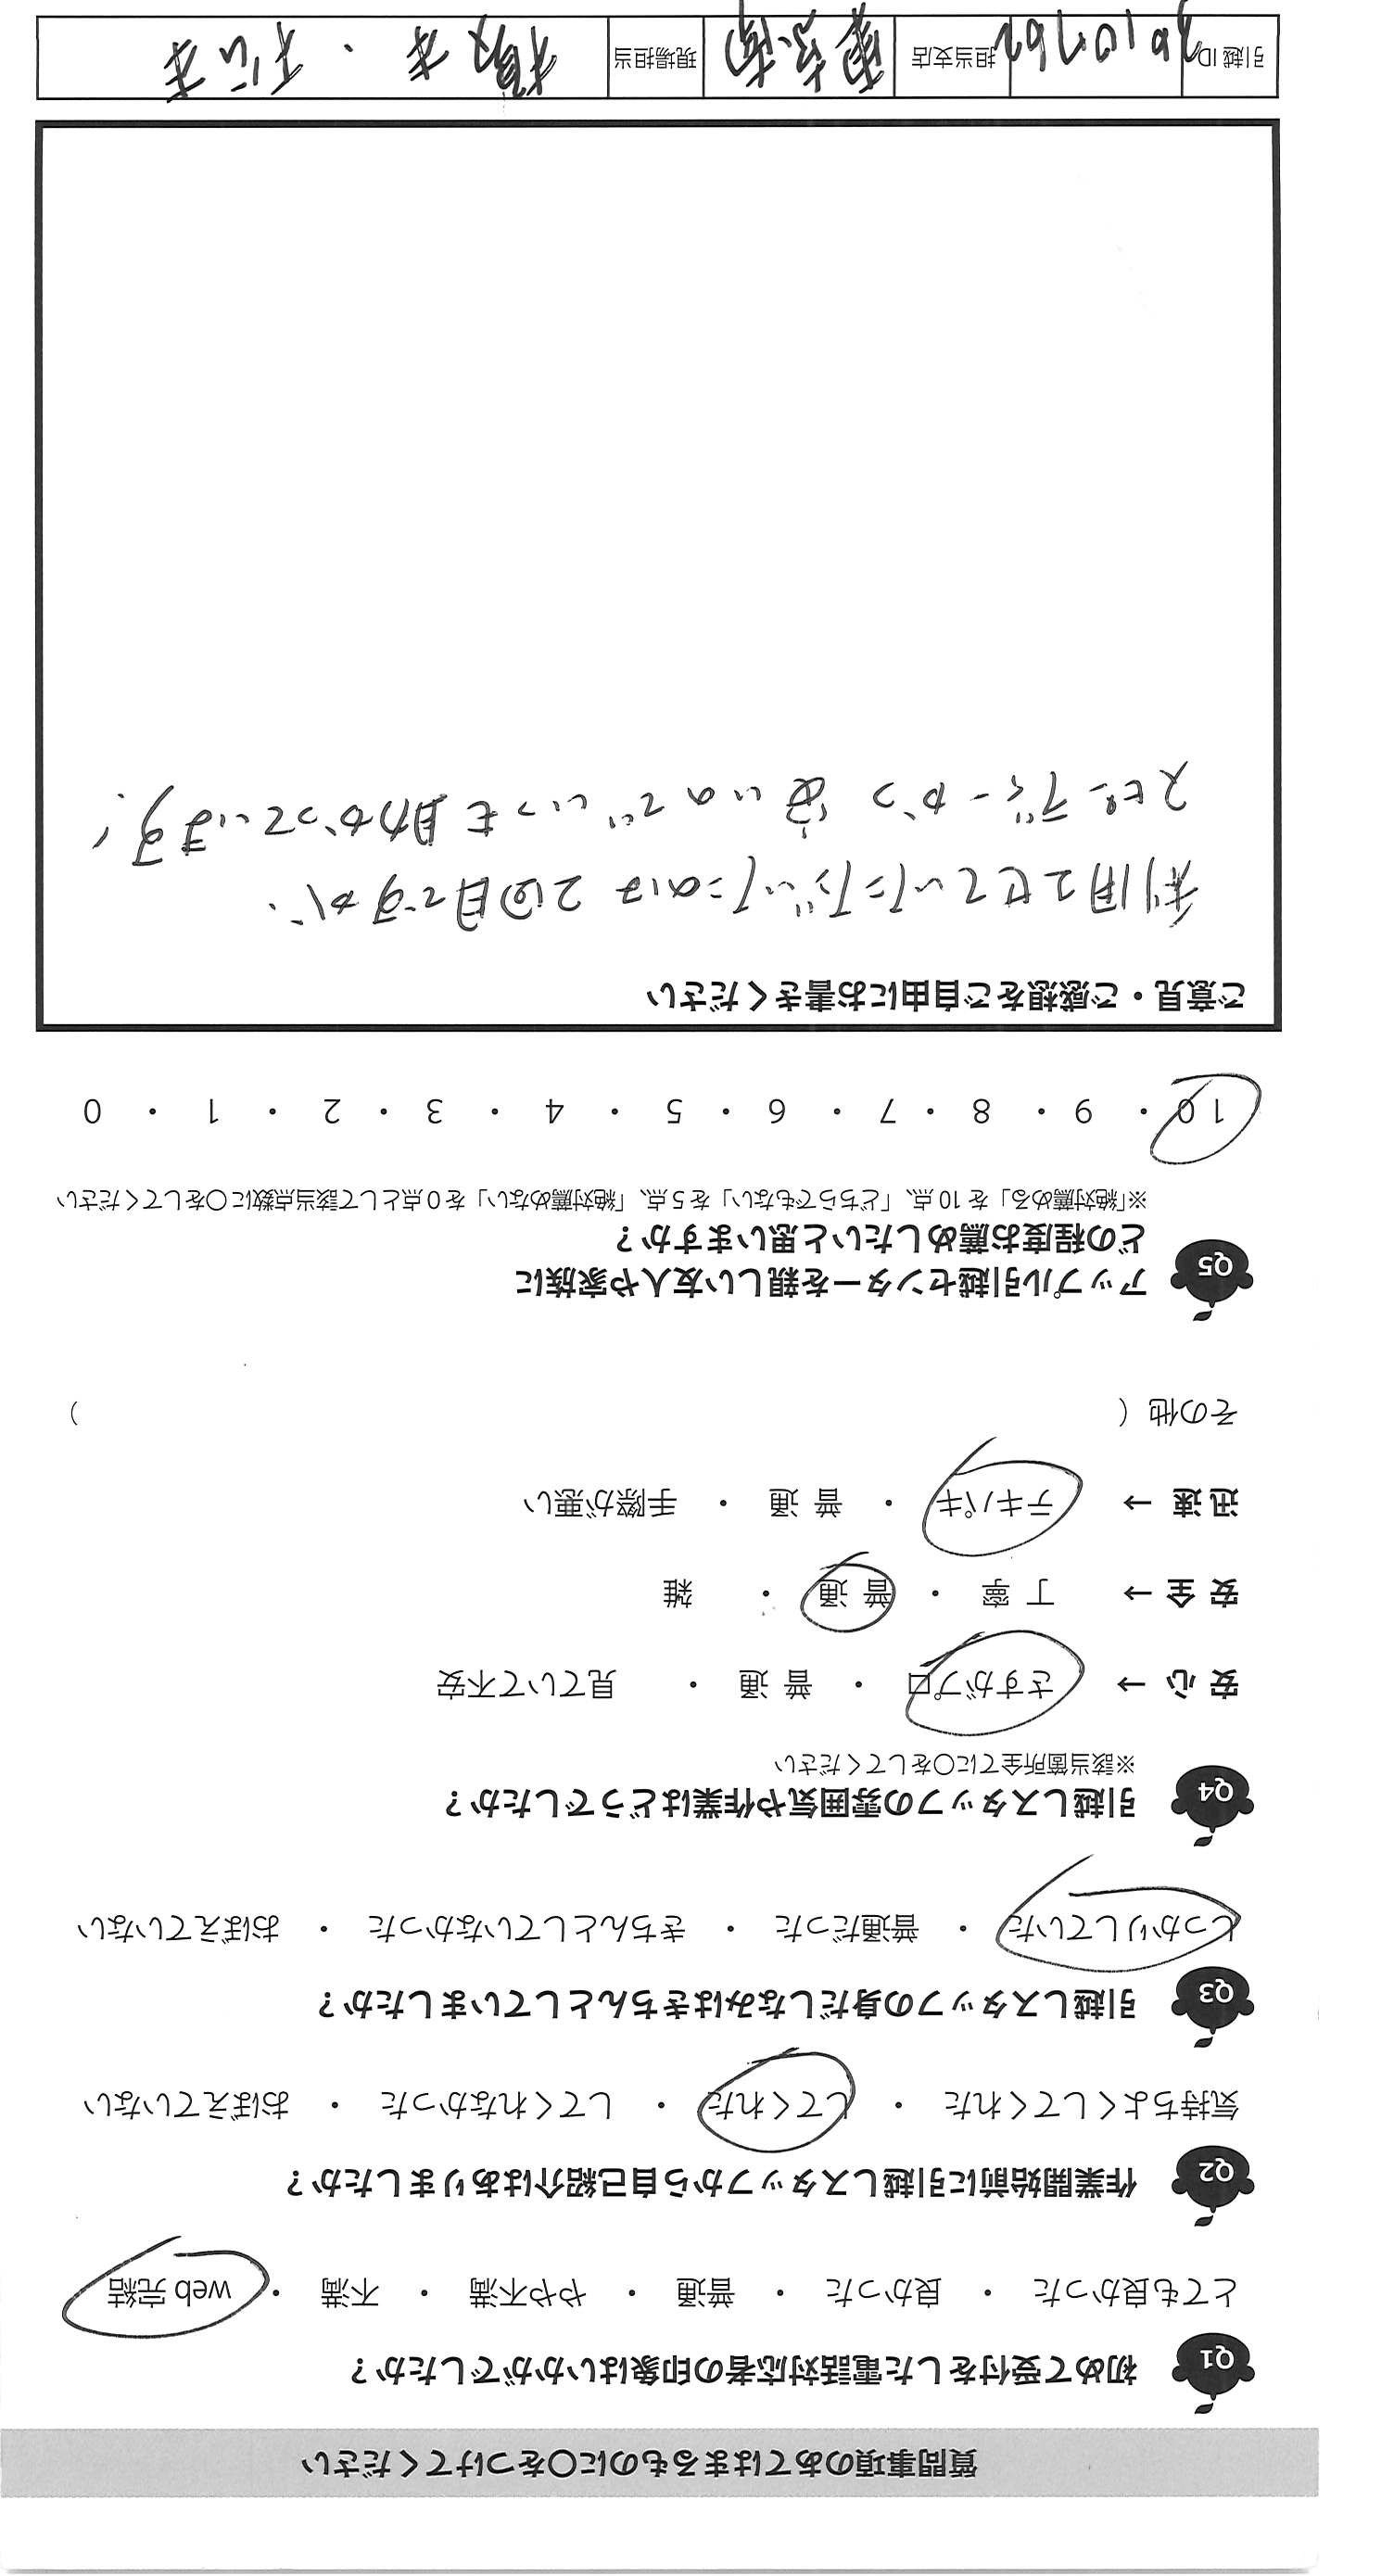 質問事項のあてはまるものに〇をつけてください
Q1 初めて受付をした電話対応者の印象はいかがでしたか?
とても良かった ・ 良かった ・ 普通 ・ やや不満 ・ 不満 ・ web 完結
Q2 作業開始前に引越しスタッフから自己紹介はありましたか?
気持ちよくしてくれた ・ してくれた ・ してくれなかった ・ おぼえていない
Q3 引越しスタッフの身だしなみはきちんとしていましたか?
しっかりしていた ・ 普通だった ・ きちんとしていなかった ・ おぼえていない
Q4 引越しスタッフの雰囲気や作業はどうでしたか?
※該当箇所全てに〇をしてください
安心 → さすがプロ ・ 普通 ・ 見ていて不安
安全 → 丁寧 ・ 普通 ・ 雑
迅速 → テキパキ ・ 普通 ・ 手際が悪い
その他 ( )
Q5 アップル引越センターを親しい友人や家族に
どの程度お薦めしたいと思いますか?
※「絶対薦める」を 10 点、「どちらでもない」を 5 点、「絶対薦めない」を 0 点として該当点数に〇をしてください
10 ・ 9 ・ 8 ・ 7 ・ 6 ・ 5 ・ 4 ・ 3 ・ 2 ・ 1 ・ 0
ご意見・ご感想をご自由にお書きください
利用させていただいたのは2回目ですが、
スピーディーかつ安いのでいつも助かっています!
引越 ID 担当支店 現場担当